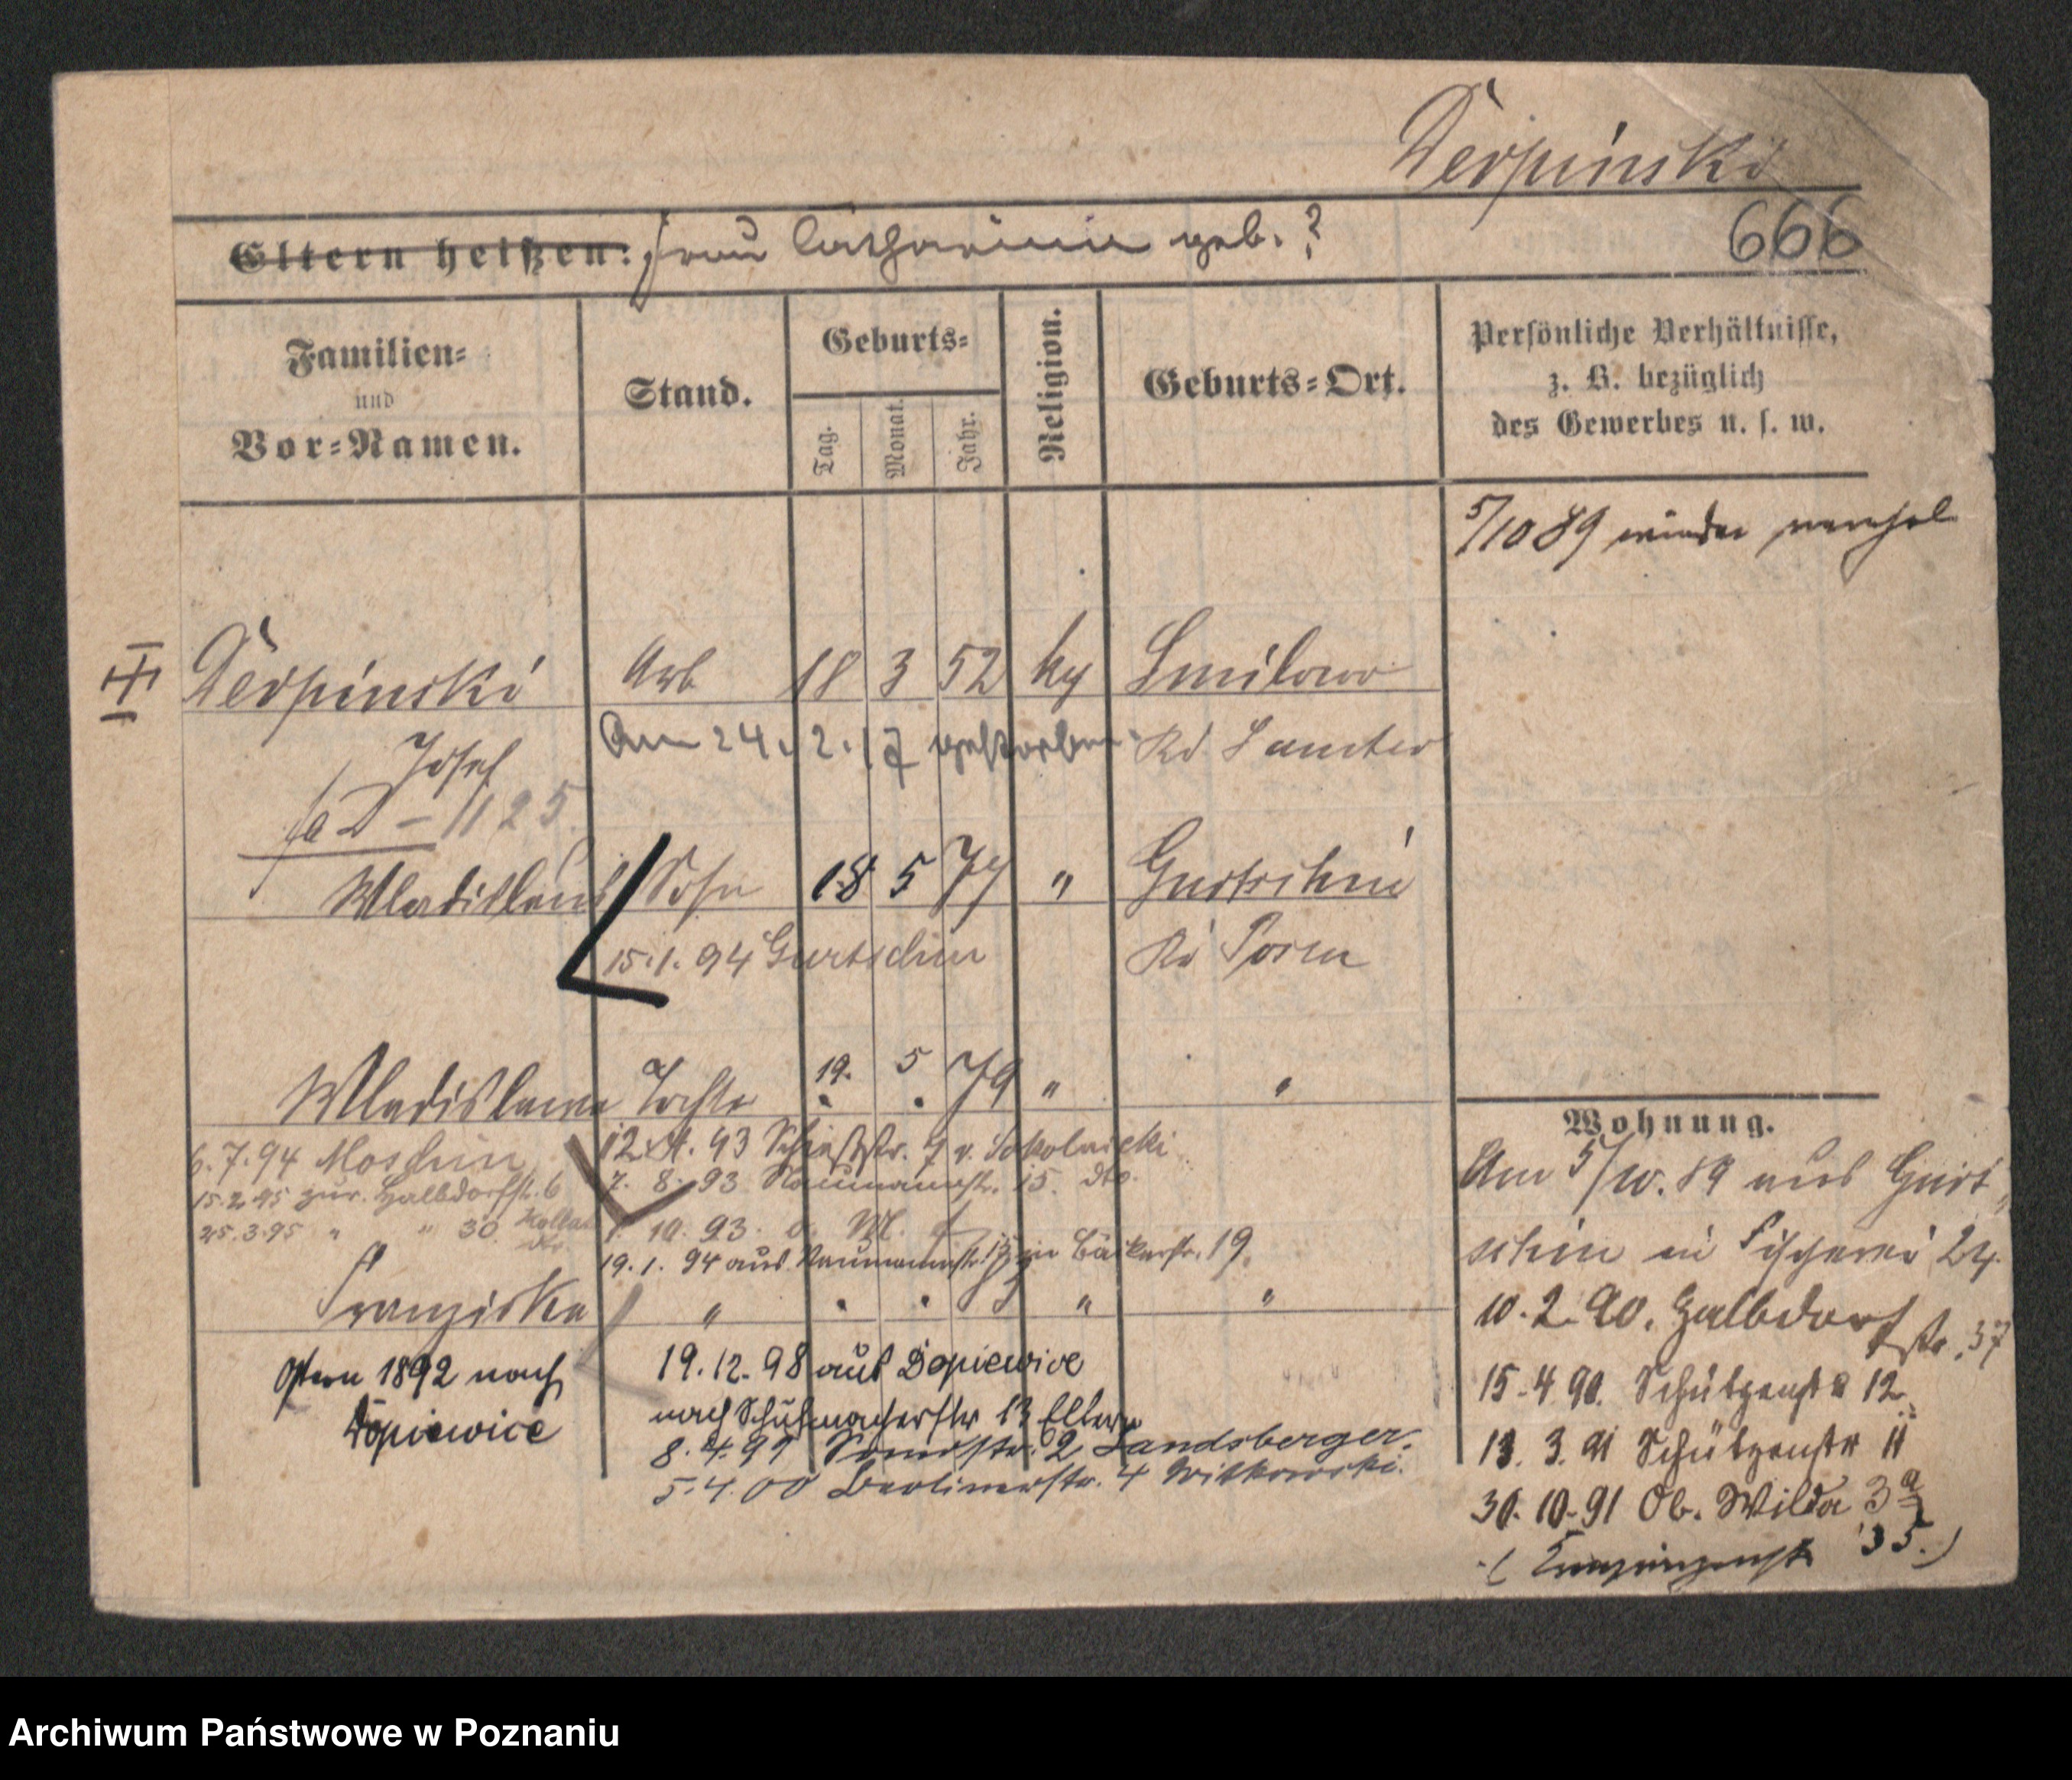 Derpinski
Eltern heißen: Frau Catharina geb. ?
666
Familien-
und
Vor-Namen.
Stand.
Geburts-
Tag.
Monat.
Jahr.
Religion.
Geburts-Ort.
Persönliche Verhältnisse,
z. B. bezüglich
des Gewerbes u. s. w.
5/10 89 wieder
Derpinski Arb 18 3 52 kg Smilowo
Josef Am 24. 2. 17 gestorben. Kr. Samter
1125
Wladislaus Sohn 18 5 77 " Gurtschin
15.1.94 Gurtschin Kr Posen
Wladislawa Tochter 19. 5 79 " "
6.7.94 Moschin
15.2.95 zur. Halbdorfstr. 6
25.3.95 " " 30
12. 4. 93 Schießstr. 7 v. Sokolnicki
7. 8. 93 Naumannstr. 15. dto.
1. 10. 93. o. M.
19. 1. 94 aus Naumannstr. 15 in Bäckerstr. 19.
Franziska " " " 83 " "
Ostern 1892 nach
Dopiewice
19.12.98 aus Dopiewice
nach Schuhmacherstr 13 Eltern
8.4.99 2 Landsberger.
5.4.00 Berlinerstr. 4 Witkowski.
Wohnung.
Am 5/10. 89 aus Gurt-
schin in Fischerei 24.
10.2.90. Halbdorf
str. 37
15.4.90. Schützenstr 12
13. 3. 91 Schützenstr 11
30.10.91 Ob. Wilda 3a
35.)
Archiwum Państwowe w Poznaniu